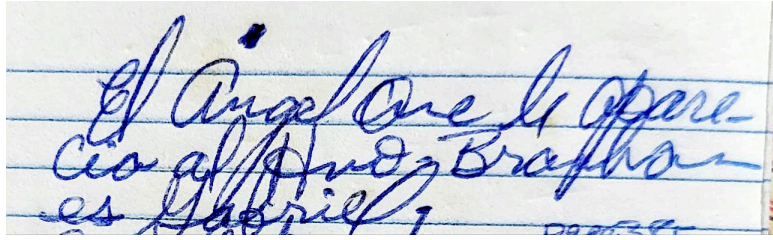 El Angel que le apare-
cio al Hno. Branham
es Gabriel,